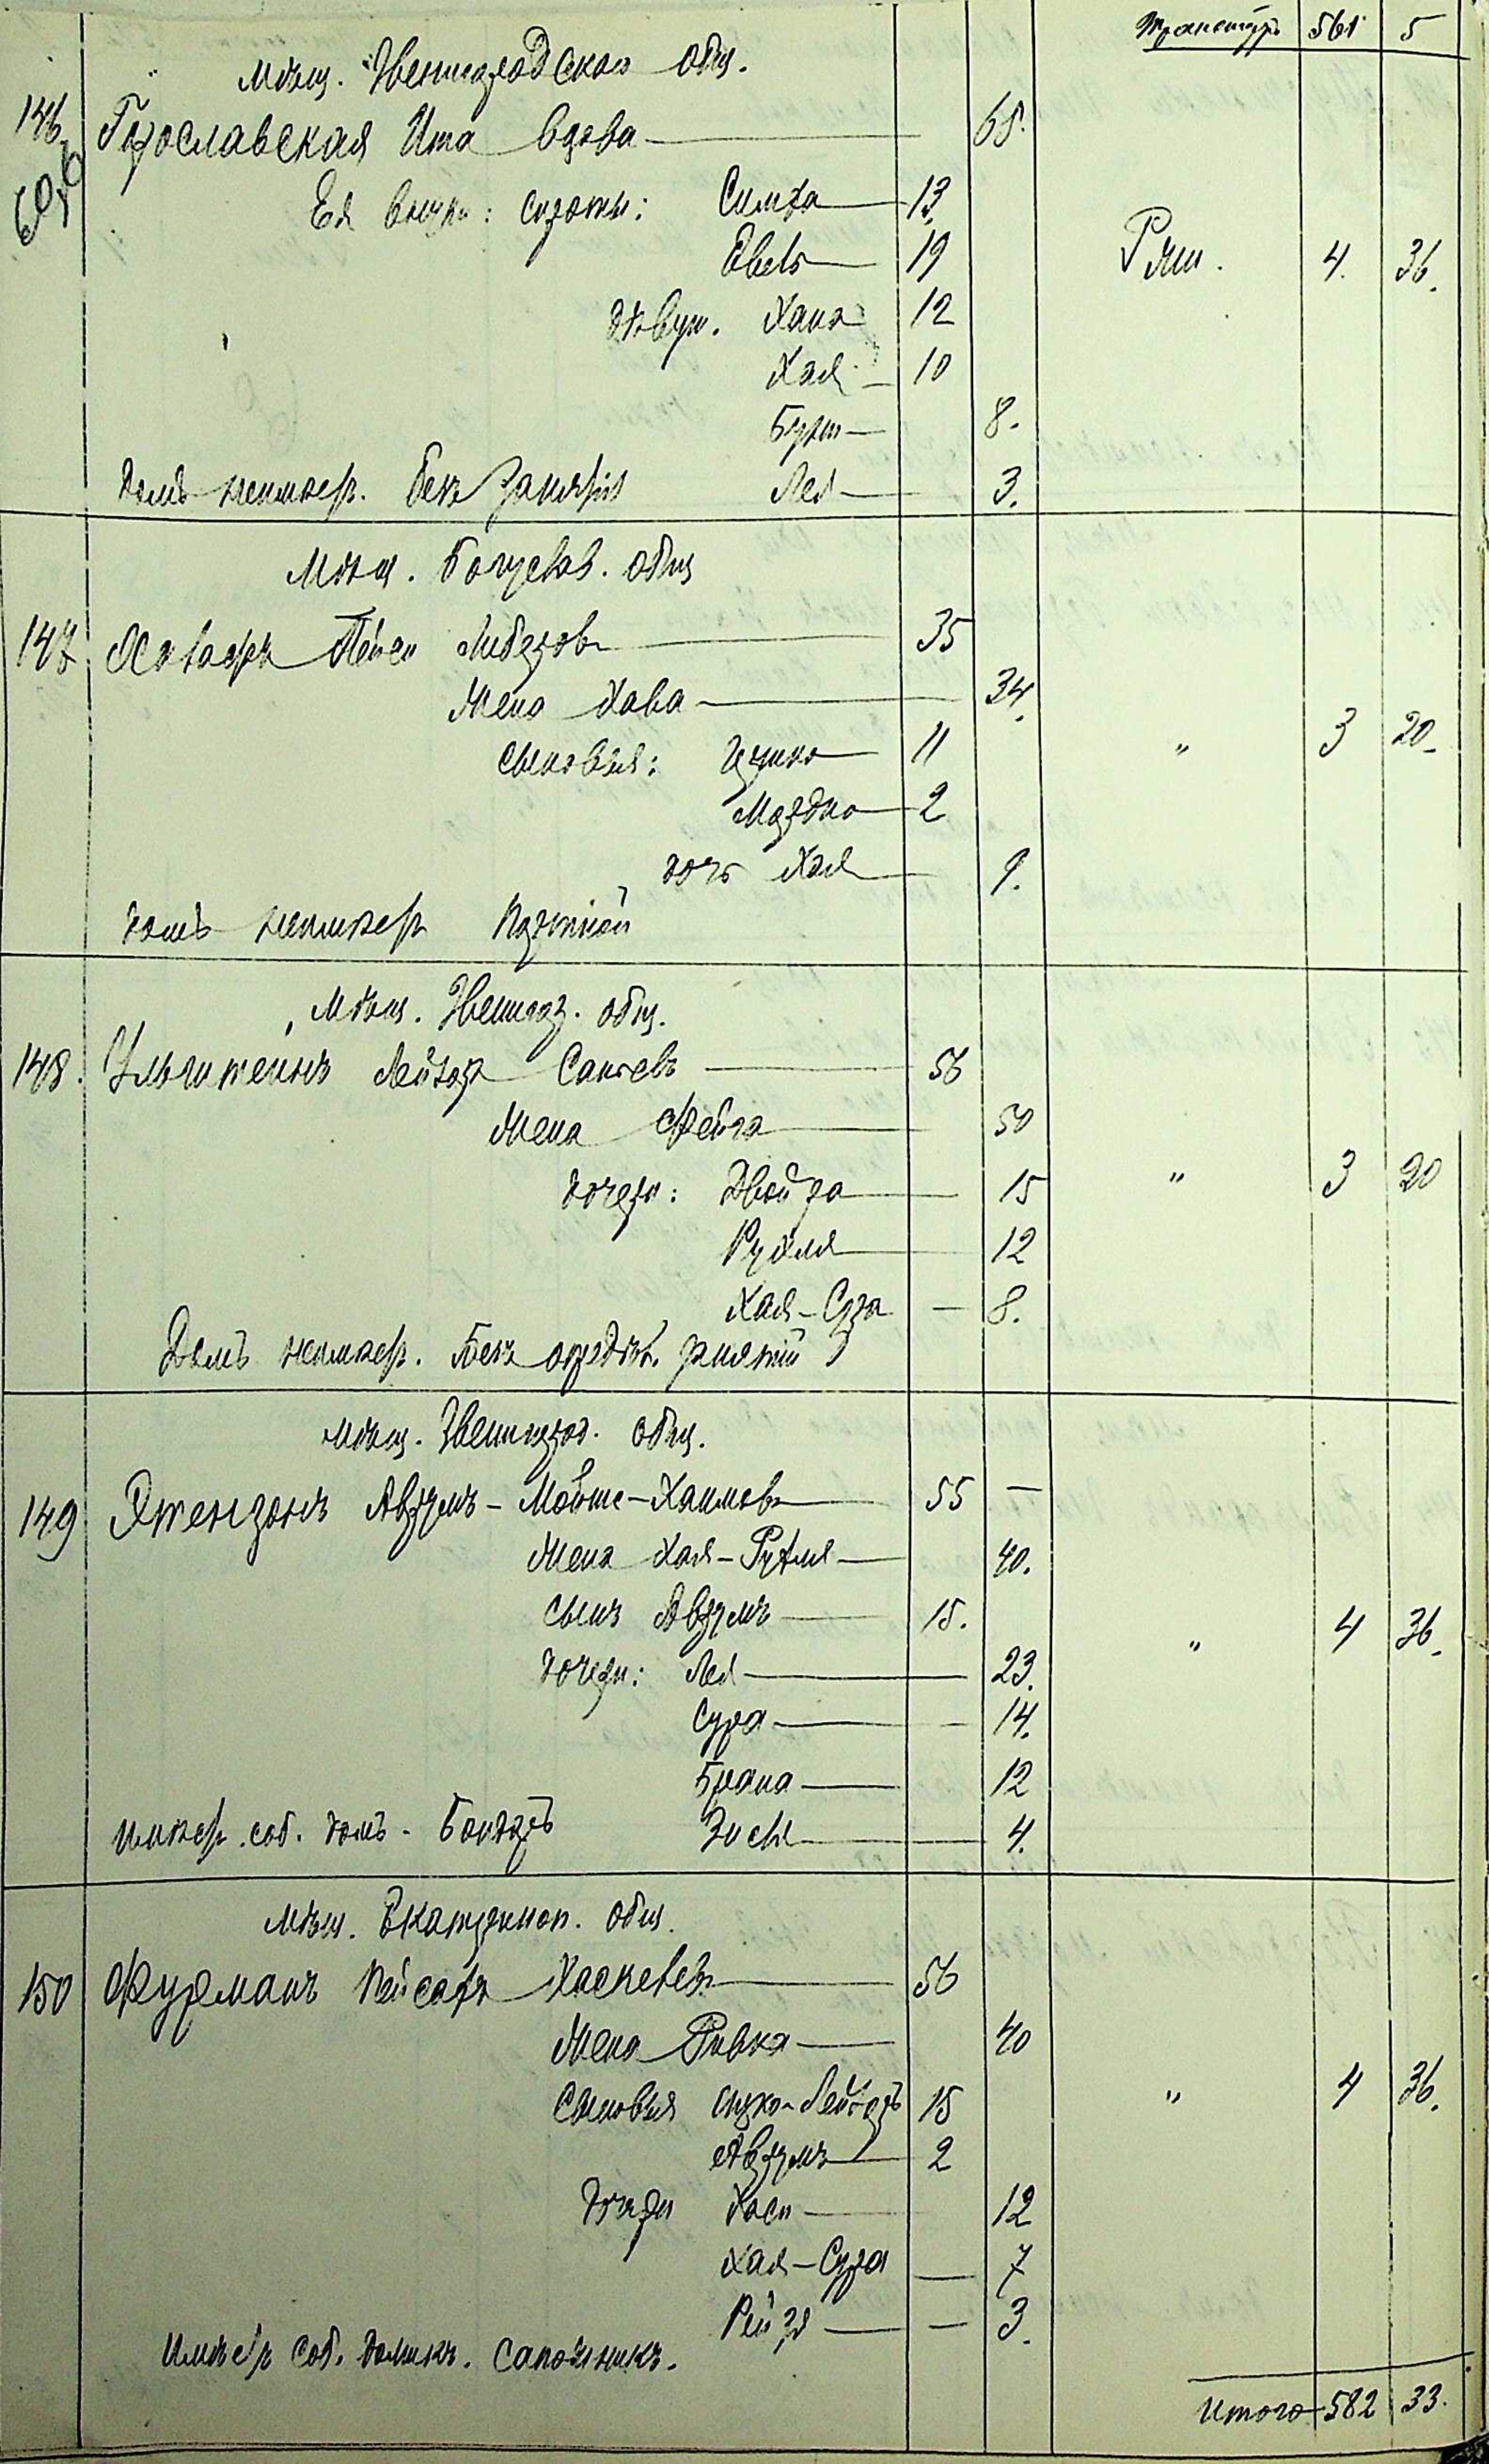 Транспортъ 561 5
Мѣщ. Звенигородскаго общ.
146. Гурославская Ита вдова 68.
Ея внуки: сироты: Симха 13.
Евель 19 Руш. 4. 36.
дѣвуш. Хана 12
Хая 10
8.
домъ неимѣетъ. Безъ занятія Лея 3.
Мѣщ. Богуслав. общ
147 Пейси Либеровъ 35
Жена Хава 34.
сыновья: 11 " 3 20.
Мордко 2
дочь Хая 9.
домъ неимѣетъ Портной
Мѣщ. Звенигор. общ.
148. Ульштейнъ Лейзоръ 56
Жена Фейга 50
дочери: Двойра 15 " 3 20
Рухля 12
Хая-Сура — 8.
Домъ неимѣетъ. Безъ опредѣл. занятій
Мѣщ. Звенигород. общ.
149 Аврумъ-Мойше-Хаимовъ 55 —
Жена Хая-Рухля 40.
сынъ Аврумъ 15. " 4 36.
дочери: Лея 23.
Сура 14.
Брана 12
имѣетъ соб. домъ - Бондарь Зися 4.
Мѣщ. Екатериноп. общ.
150 Фурманъ Пейсахъ Хаскелевъ 56
Жена Ривка 40
Сыновья Лейзеръ 15 " 4 36.
Аврумъ 2
Дочери Хася 12
Хая-Сура 7
Рейзя — 3.
Имѣетъ соб. домикъ. Сапожникъ.
Итого 582 33.